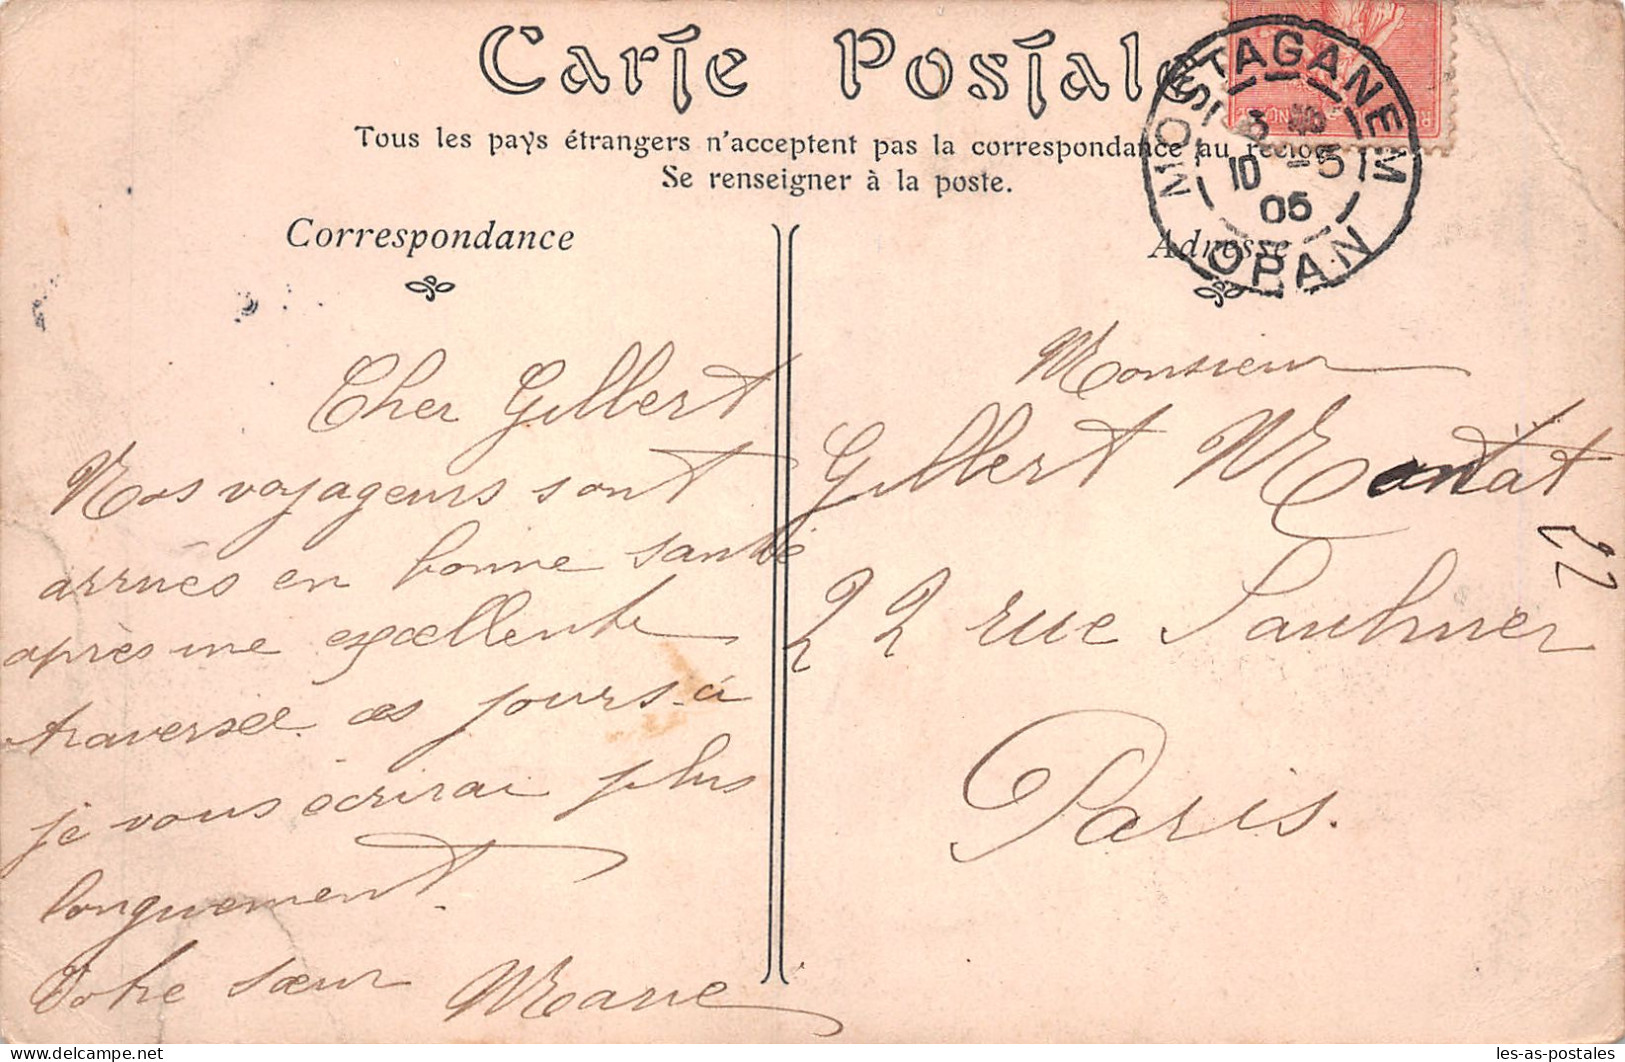 Carte Postale
Tous les pays étrangers n'acceptent pas la correspondance au recto
Se renseigner à la poste.
Correspondance
Adresse
MOSTAGANEM
10 -5
05
ORAN
Cher Gilbert
Nos voyageurs sont
arrivés en bonne santé
après une excellente
traversée ces jours-ci
je vous écrirai plus
longuement.
Votre sœur Marie
Monsieur
Gilbert
22 rue Saulnier
Paris.
22
les-as-postales
delcampe.net